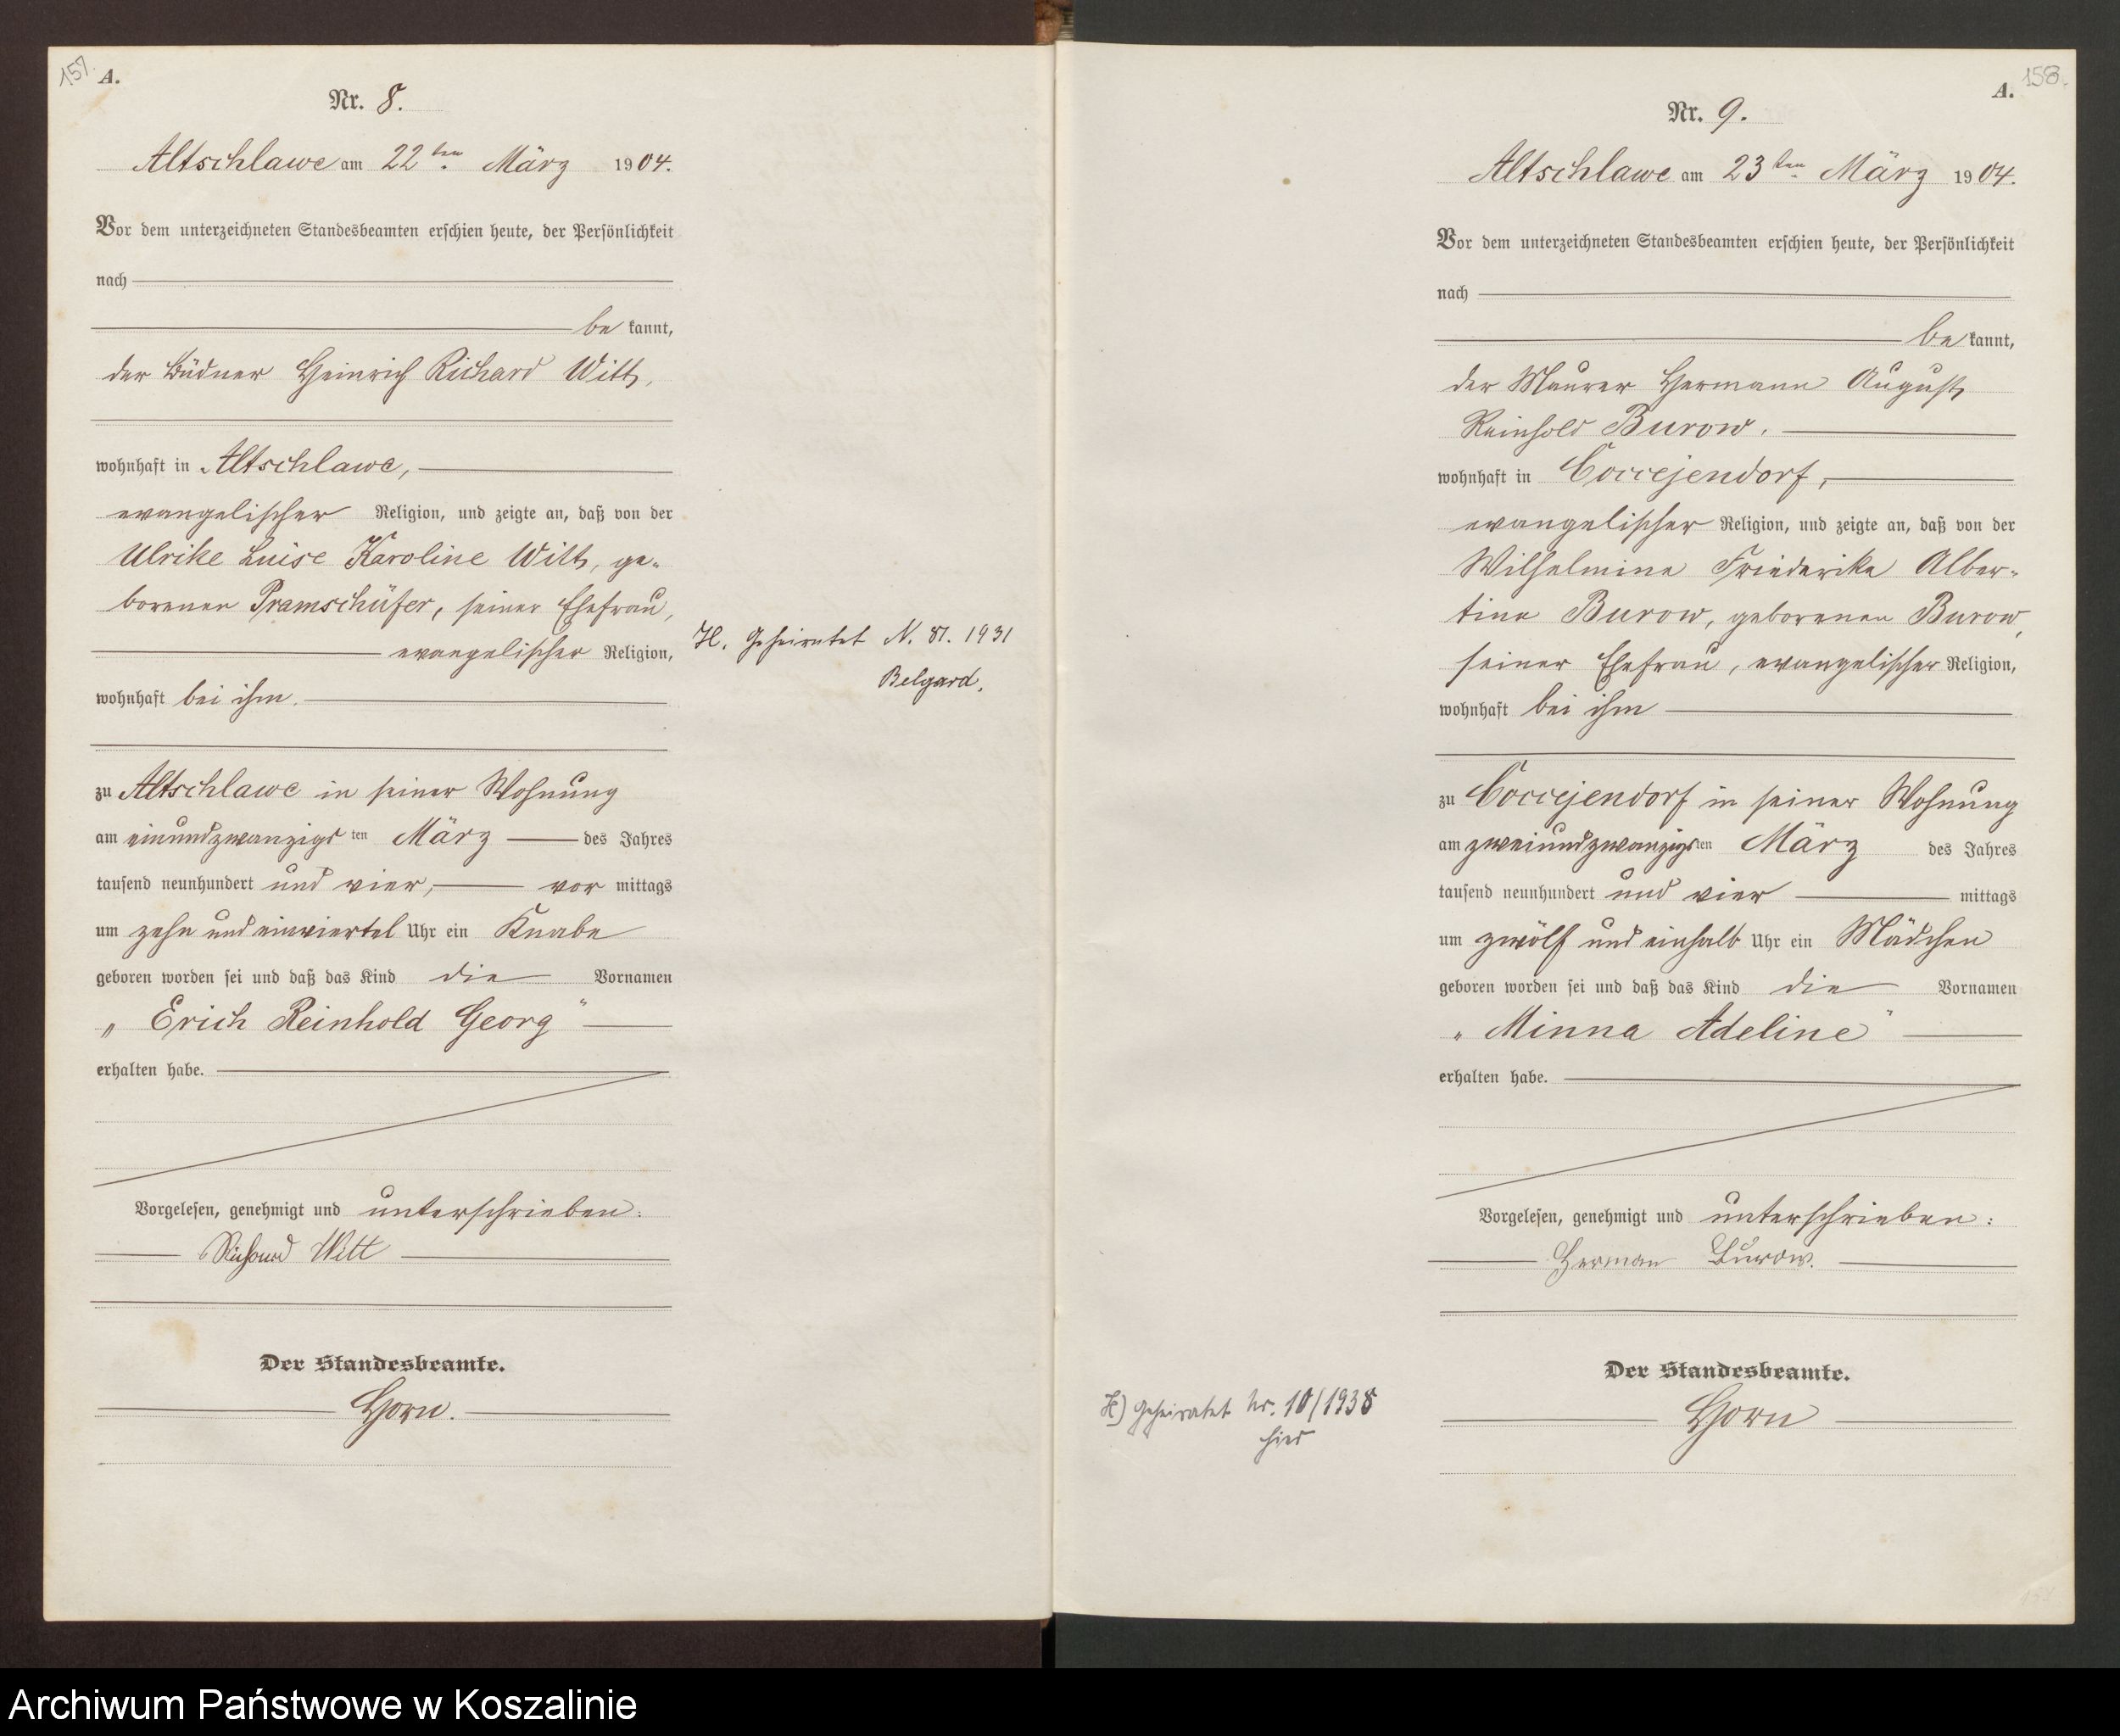 157.
A.
Nr. 8.
Altschlawe am 22ten März 1904.
Vor dem unterzeichneten Standesbeamten erschien heute, der Persönlichkeit
nach
be kannt,
der Büdner Heinrich Richard Witt,
wohnhaft in Altschlawe,
evangelischer Religion, und zeigte an, daß von der
Ulrike Luise Karoline Witt, ge-
borenen Pramschüfer, seiner Ehefrau,
evangelischer Religion,
wohnhaft bei ihm.
zu Altschlawe in seiner Wohnung
am einundzwanzigsten März des Jahres
tausend neunhundert und vier, vor mittags
um zehn und einviertel Uhr ein Knabe
geboren worden sei und daß das Kind die Vornamen
„Erich Reinhold Georg"
erhalten habe.
Vorgelesen, genehmigt und unterschrieben:
Richard Witt
Der Standesbeamte.
Horn.
H. Geheiratet N. 81. 1931
Belgard.
158.
A.
Nr. 9.
Altschlawe am 23ten März 1904.
Vor dem unterzeichneten Standesbeamten erschien heute, der Persönlichkeit
nach
be kannt,
der Maurer Hermann August
Reinhold Burow.
wohnhaft in Coccejendorf,
evangelischer Religion, und zeigte an, daß von der
Wilhelmine Friederike Alber-
tine Burow, geborenen Burow,
seiner Ehefrau, evangelischer Religion,
wohnhaft bei ihm
zu Coccejendorf in seiner Wohnung
am zweiundzwanzigsten März des Jahres
tausend neunhundert und vier mittags
um zwölf und einhalb Uhr ein Mädchen
geboren worden sei und daß das Kind die Vornamen
„Minna Adeline"
erhalten habe.
Vorgelesen, genehmigt und unterschrieben:
Herman Burow.
Der Standesbeamte.
Horn
H) geheiratet Nr. 10/1938
hier
Archiwum Państwowe w Koszalinie